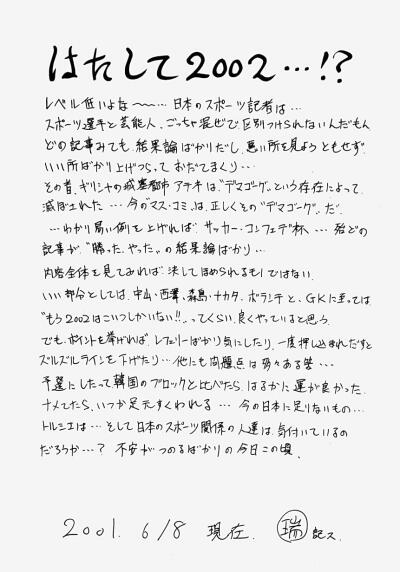 はたして2002…!?
レベル低いよな〜〜… 日本のスポーツ記者は…
スポーツ選手と芸能人、ごっちゃ混ぜで、区別つけられないんだもん
どの記事みても、結果論ばかりだし、悪い所を見ようともせず、
いい所ばかり上げつらって おだてまくり…
その昔、ギリシャの城塞都市 アテネは、"デマゴーグ"という存在によって
滅ぼされた … 今の"マス・コミ"は、正しくその"デマゴーグ"だ。
…わかり易い例を上げれば、サッカー・コンフェデ杯、… 殆どの
記事が、"勝った、やった"の結果論ばかり…
内容全体を見てみれば、決してほめられるモノではない。
いい部分としては、中山・西澤、森島・ナカタ、ボランチと、GKに至っては
"もう2002はこいつしかいない!!"ってくらい、良くやっていると思う。
でも、ポイントを挙げれば、レフェリーばかり気にしたり、一度押し込まれだすと
ズルズルラインを下げたり… 他にも問題点は多々ある筈…
予選にしたって韓国のブロックと比べたら、はるかに運が良かった。
ナメてたら、いつか足元すくわれる … 今の日本に足りないもの…
トルシエは… そして日本のスポーツ関係の人達は、気付いているの
だろうか…? 不安がつのるばかりの今日この頃。
2001. 6/8 現在. 瑞 記ス.